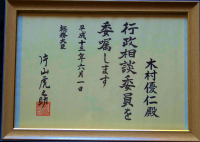 木村優仁殿
行政相談委員を
委嘱します
平成十三年六月一日
総務大臣
片山虎之助